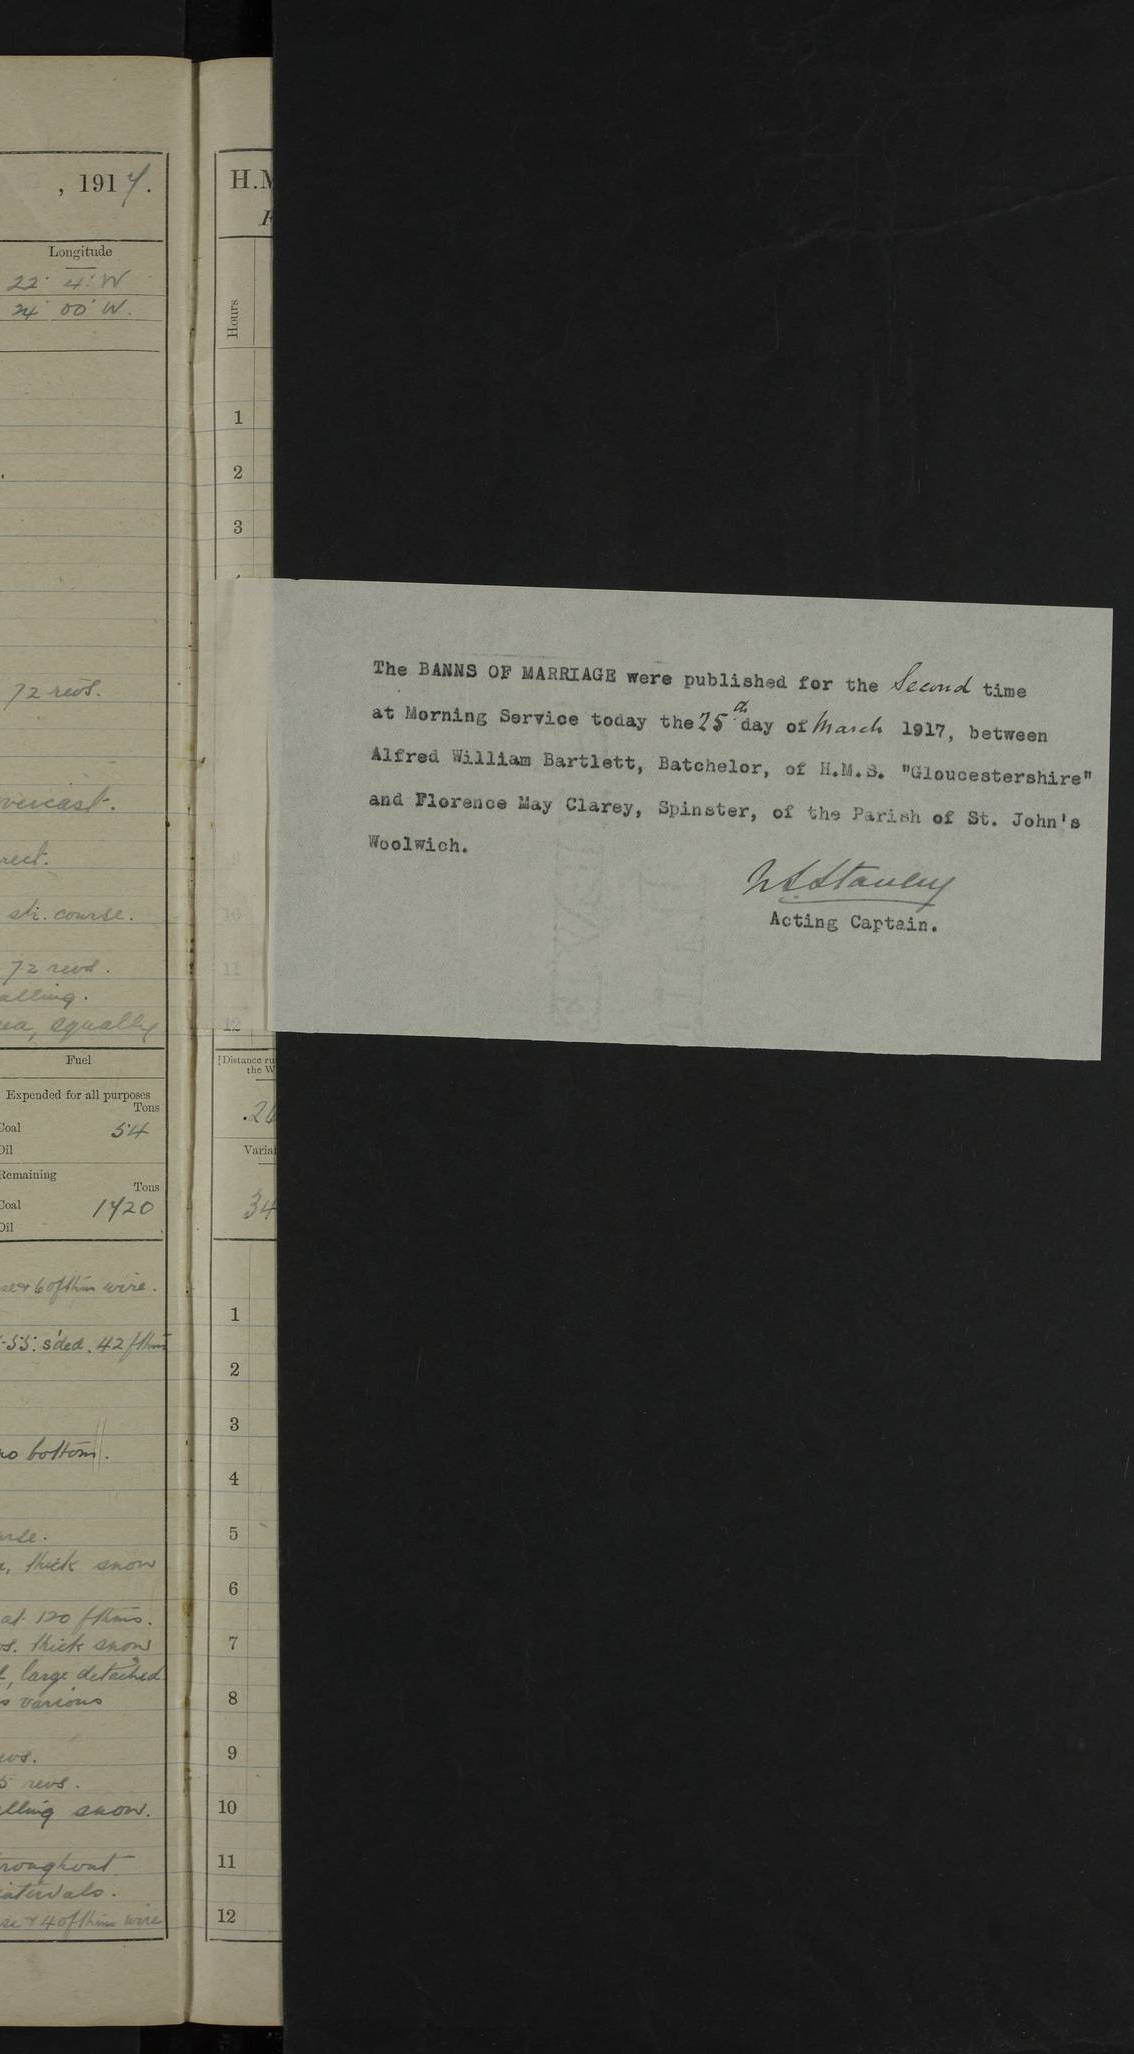 , 1917.
Longitude
22° 4' W
24° 00' W.
72 revs.
overcast.
str. course.
72 revd.
squally
Fuel
Expended for all purposes
Tons
Coal 54
Oil
Remaining
Tons
Coal 1720
Oil
6 of thin wire.
-55. s'ded. 42 fthms
no bottom.
thick snow
at 120 fthms.
thick snow
large detached
various
revs.
5 revs.
snow.
throughout
intervals.
& 4 of thin wire
H.M
Hours
1
2
3
10
11
12
[Distance ru
the W
Varia
34
1
2
3
4
5
6
7
8
9
10
11
12
The BANNS OF MARRIAGE were published for the Second time
at Morning Service today the 25th day of March 1917, between
Alfred William Bartlett, Batchelor, of H.M.S. "Gloucestershire"
and Florence May Clarey, Spinster, of the Parish of St. John's
Woolwich.
Stanley
Acting Captain.